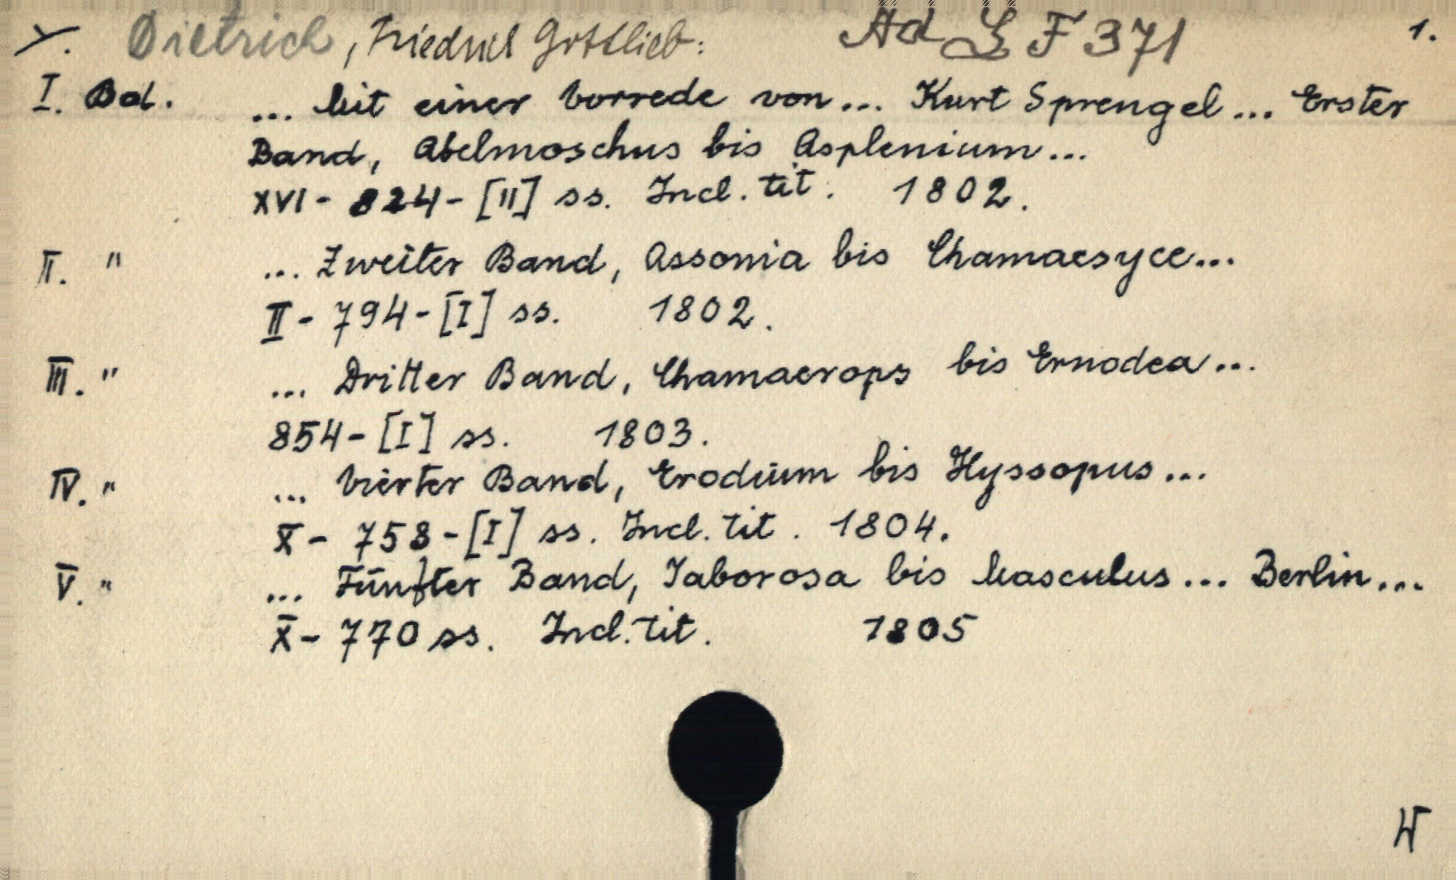 Y. Dietrich, Friedrich Gottlieb: Ad L F 371 1.
I. Bd. ... Mit einer Vorrede von... Kurt Sprengel... Erster
Band, Abelmoschus bis Asplenium...
XVI - 824 - [II] ss. Incl. tit. 1802.
II. " ... Zweiter Band, Assonia bis Chamaesyce...
II - 794 - [I] ss. 1802.
III. " ... Dritter Band, Chamaerops bis Ernodea...
854 - [I] ss. 1803.
IV. " ... Vierter Band, Erodium bis Hyssopus...
X - 758 - [I] ss. Incl. tit. 1804.
V. " ... Fünfter Band, Jaborosa bis Masculus... Berlin...
X - 770 ss. Incl. tit. 1805